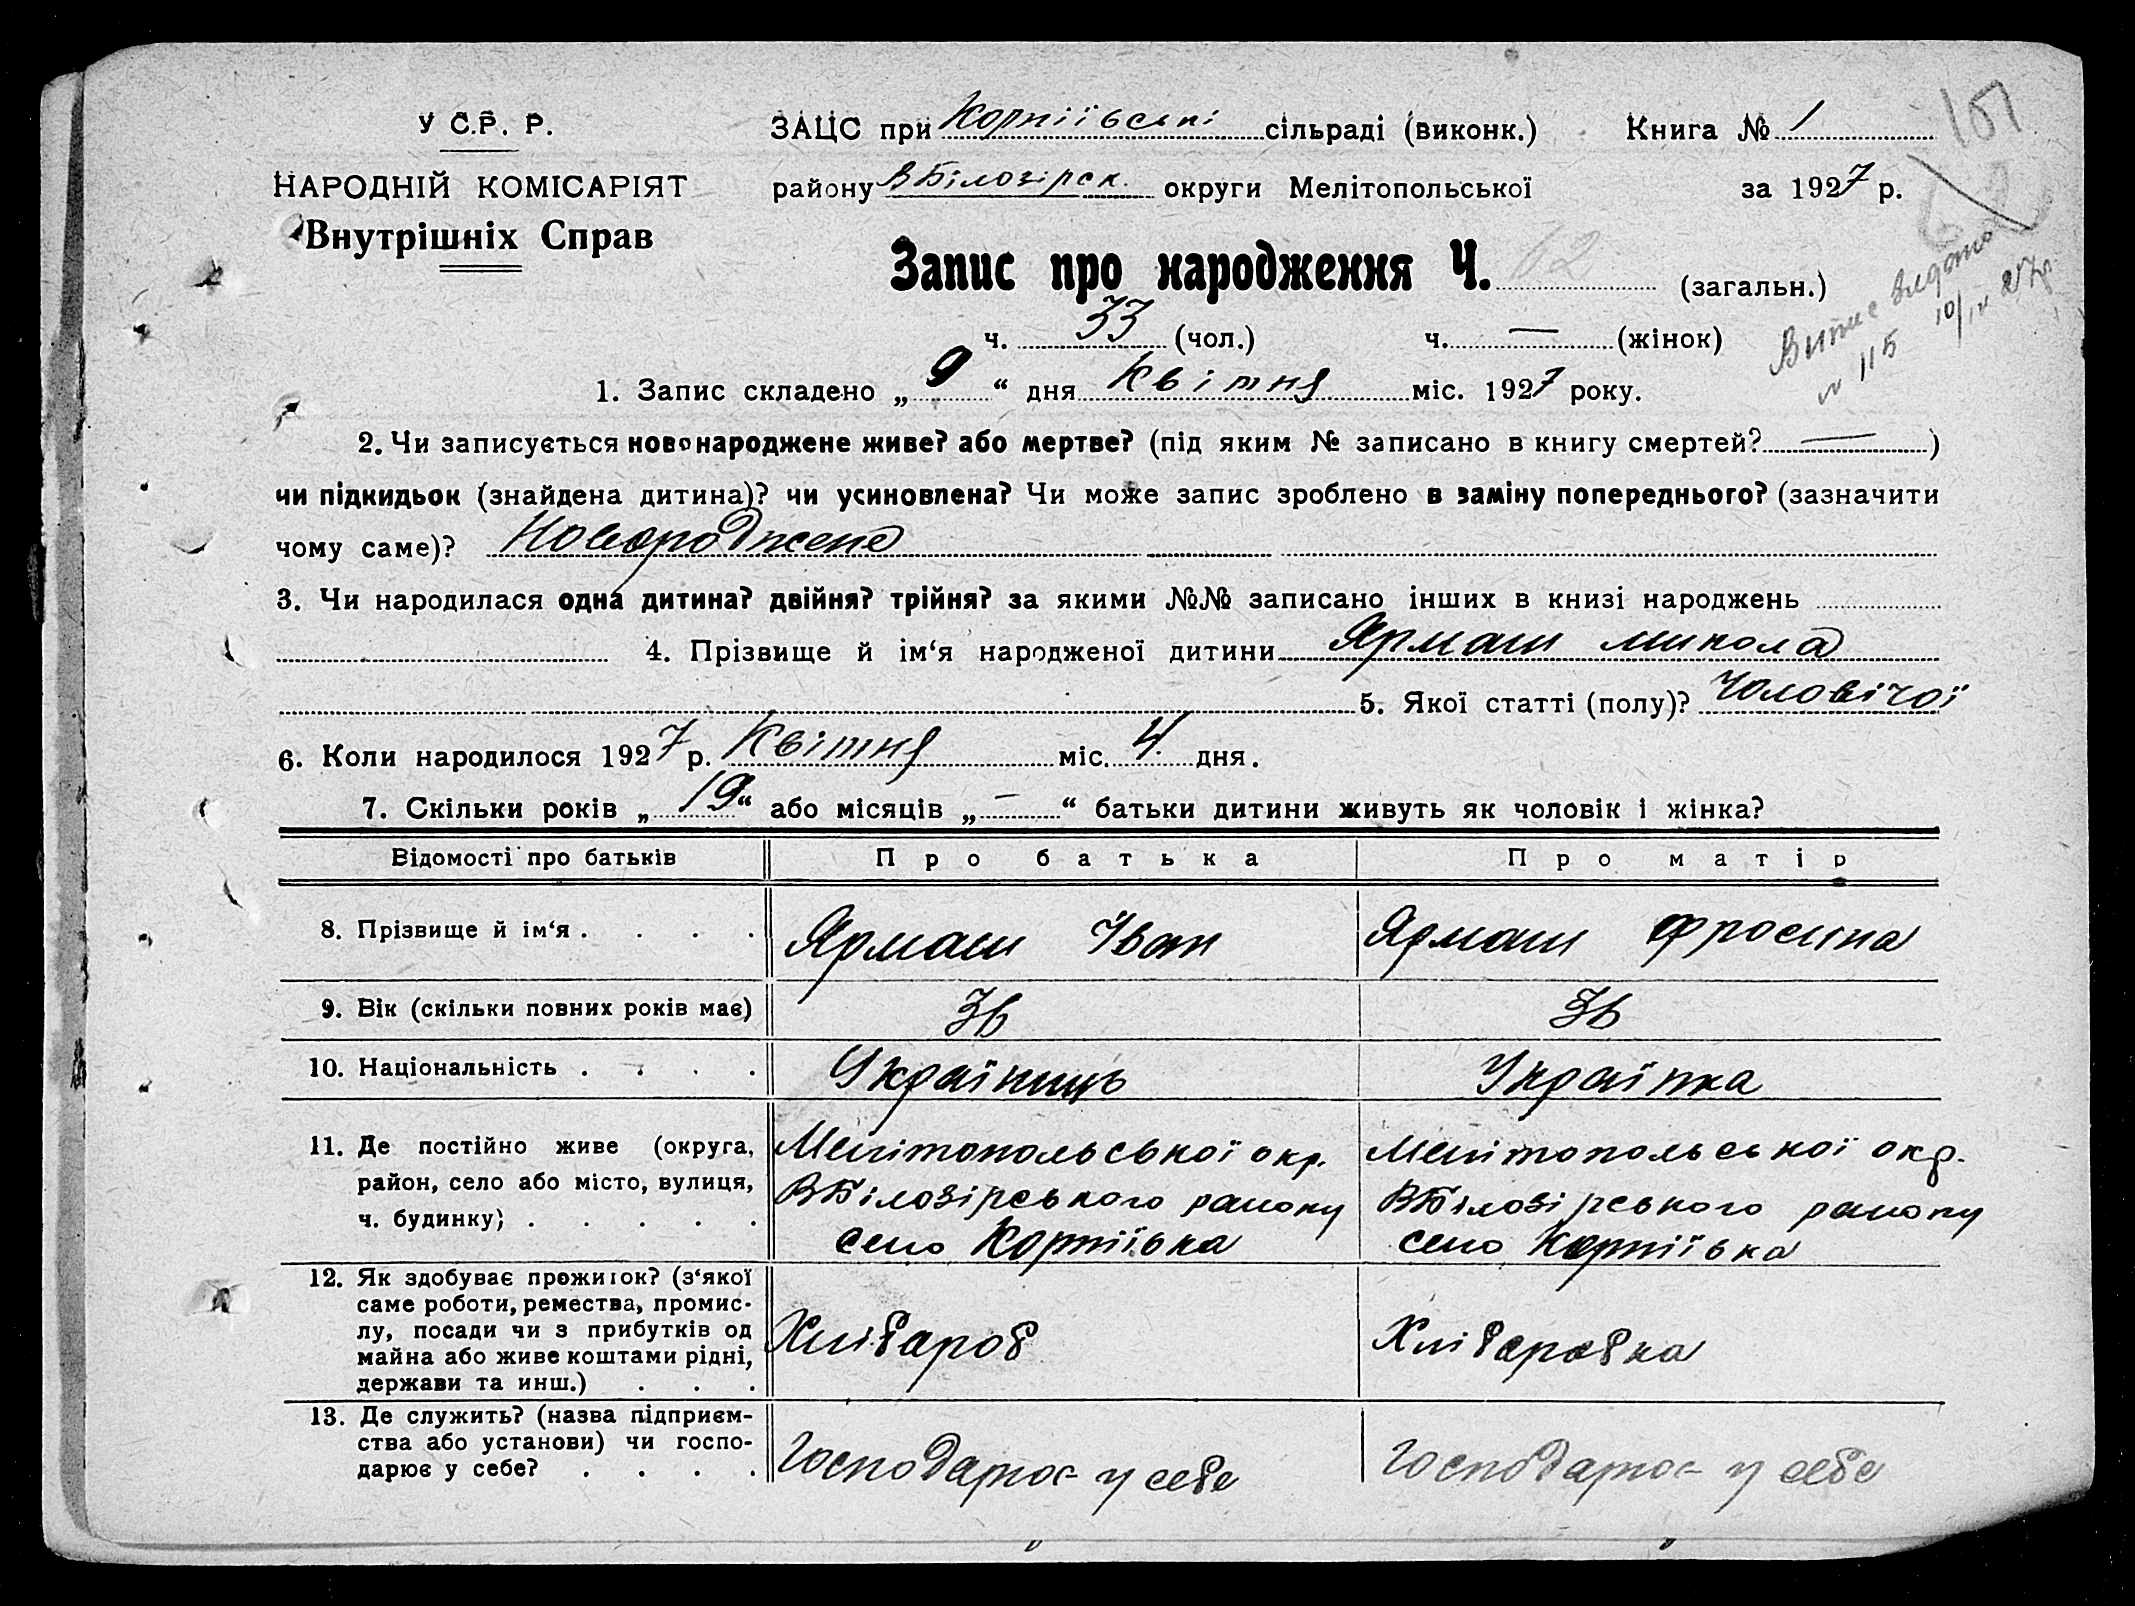 У С.Р. Р.
НАРОДНІЙ КОМІСАРІЯТ
Внутрішніх Справ
ЗАЦС при Корніївські сільраді (виконк.) Книга № 1
району ВБілозірск. округи Мелітопольської за 1927 р.
101
Запис про народження Ч. 62 (загальн.)
Витис видано
№ 115 10/IV 27р.
ч. 33 (чол.) ч. — (жінок)
1. Запис складено „ 9 “ дня Квітня міс. 1927 року.
2. Чи записується новонароджене живе? або мертве? (під яким № записано в книгу смертей? — )
чи підкидьок (знайдена дитина)? чи усиновлена? Чи може запис зроблено в заміну попереднього? (зазначити
чому саме)? Новороджене
3. Чи народилася одна дитина? двійня? трійня? за якими №№ записано інших в книзі народжень
4. Прізвище й ім‘я народженої дитини Ярмаш Микола
5. Якої статті (полу)? Чоловічої
6. Коли народилося 1927 р. Квітня міс. 4 дня.
7. Скільки років „ 19 “ або місяців „ — “ батьки дитини живуть як чоловік і жінка?
Відомості про батьків Про батька Про матір
8. Прізвище й ім‘я . . . . Ярмаш Іван Ярмаш Фросина
9. Вік (скільки повних років має) 36 36
10. Національність . . . . Українць Українка
11. Де постійно живе (округа, Мелітопольської окр. Мелітопольської окр.
район, село або місто, вулиця, ВБілозірського району ВБілозірського району
ч. будинку) . . . . . село Корніївка село Корніївка
12. Як здобуває прожиток? (з‘якої
саме роботи, ремества, промис-
лу, посади чи з прибутків од Хлібароб Хлібаробка
майна або живе коштами рідні,
держави та инш.) . . .
13. Де служить? (назва підприєм-
ства або установи) чи госпо- Господарює у себе Господарює у себе
дарює у себе? . . . .